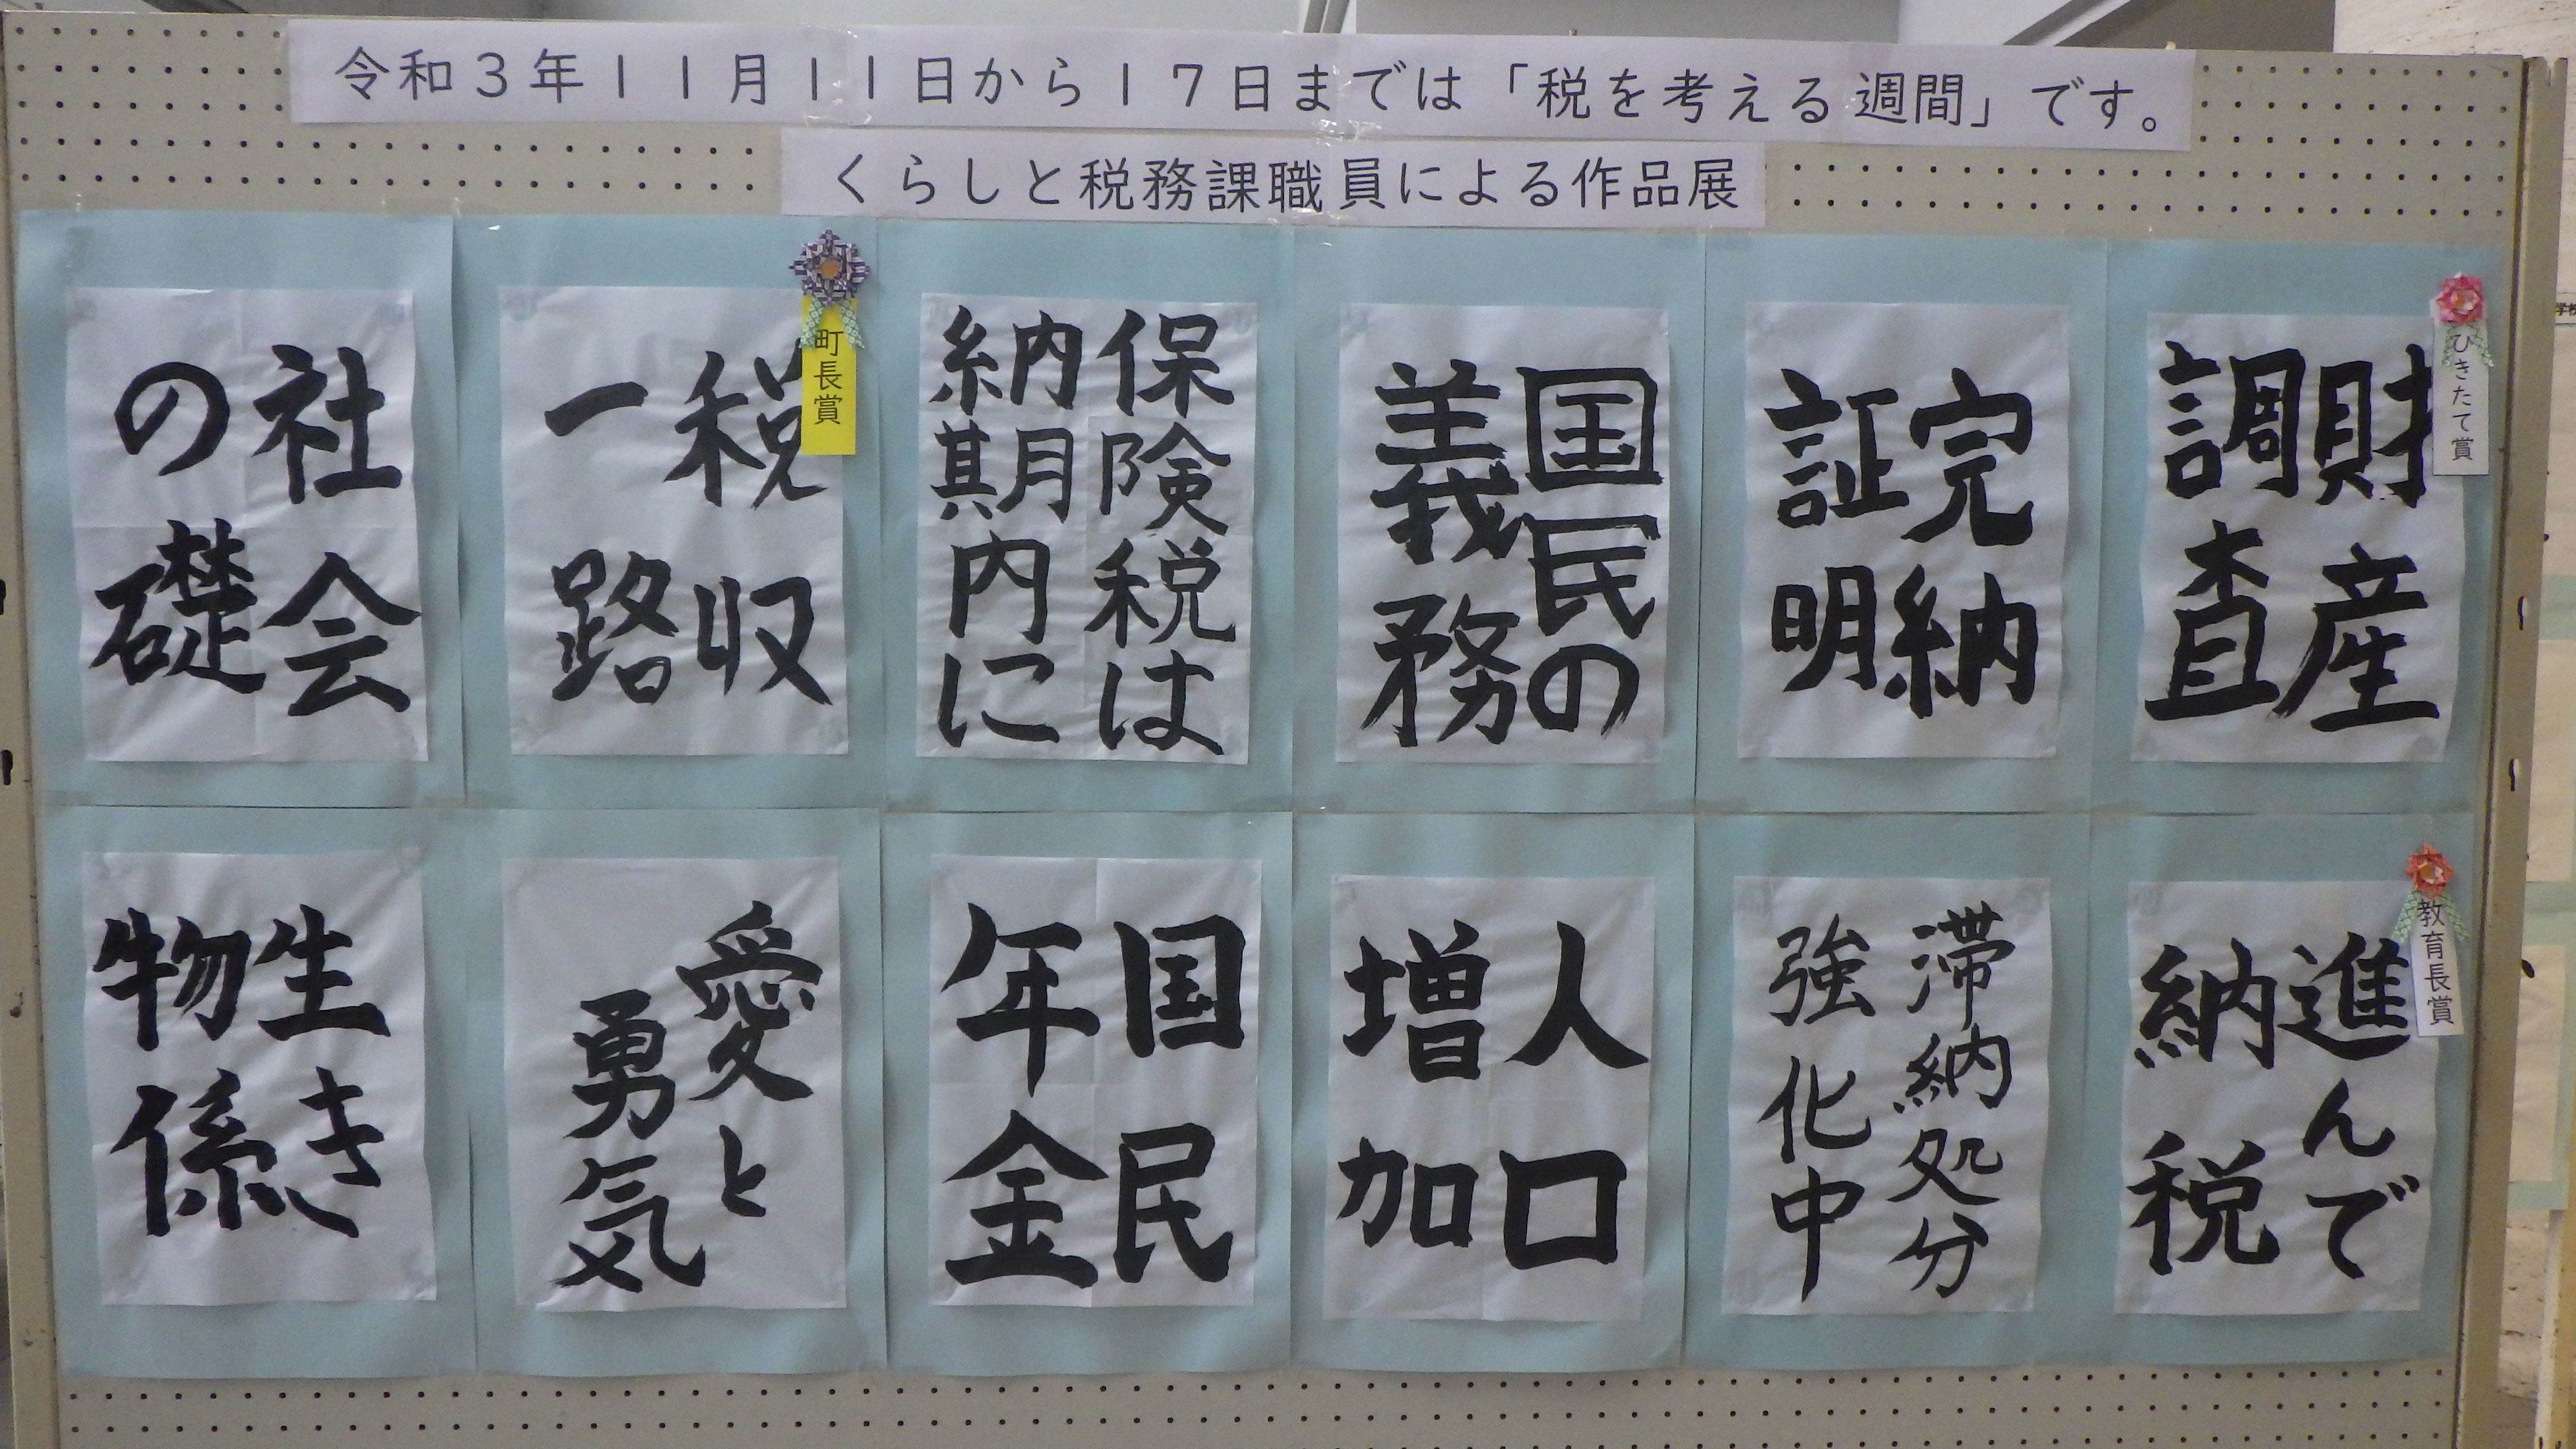 令和3年11月11日から17日までは「税を考える週間」です。
くらしと税務課職員による作品展
ひきたて賞
財産
調査
完納
証明
国民の
義務
保険税は
納期内に
町長賞
税収
一路
社会
の礎
教育長賞
進んで
納税
滞納処分
強化中
人口
増加
国民
年金
愛と
勇気
生き
物係